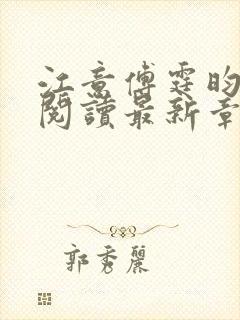 江意傅霆昀
閱讀最新章
郭秀麗